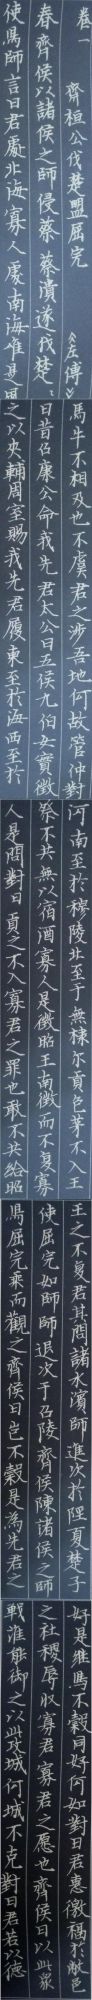 卷一
齊桓公伐楚盟屈完 《左傳》
春齊侯以諸侯之師侵蔡蔡潰遂伐楚楚
使與師言曰君處北海寡人處南海惟是風
馬牛不相及也不虞君之涉吾地何故管仲對
曰昔召康公命我先君太公曰五侯九伯女實徵
之以夾輔周室賜我先君履東至於海西至於
河南至於穆陵北至于無棣尔貢包茅不入王
祭不共無以宿酒寡人是徵昭王南徵而不复寡
人是問對曰貢之不入寡君之罪也敢不共給昭
王之不复君其問諸水濱師進次於陘夏楚子
使屈完如師師退次于召陵齊侯陳諸侯之師
與屈完乘而觀之齊侯曰豈不穀是為先君之
好是繼與不穀同好何如對曰君惠徼福於敝邑
之社稷辱收寡君寡君之愿也齊侯曰以此衆
戰誰能御之以此攻城何城不克對曰君若以德